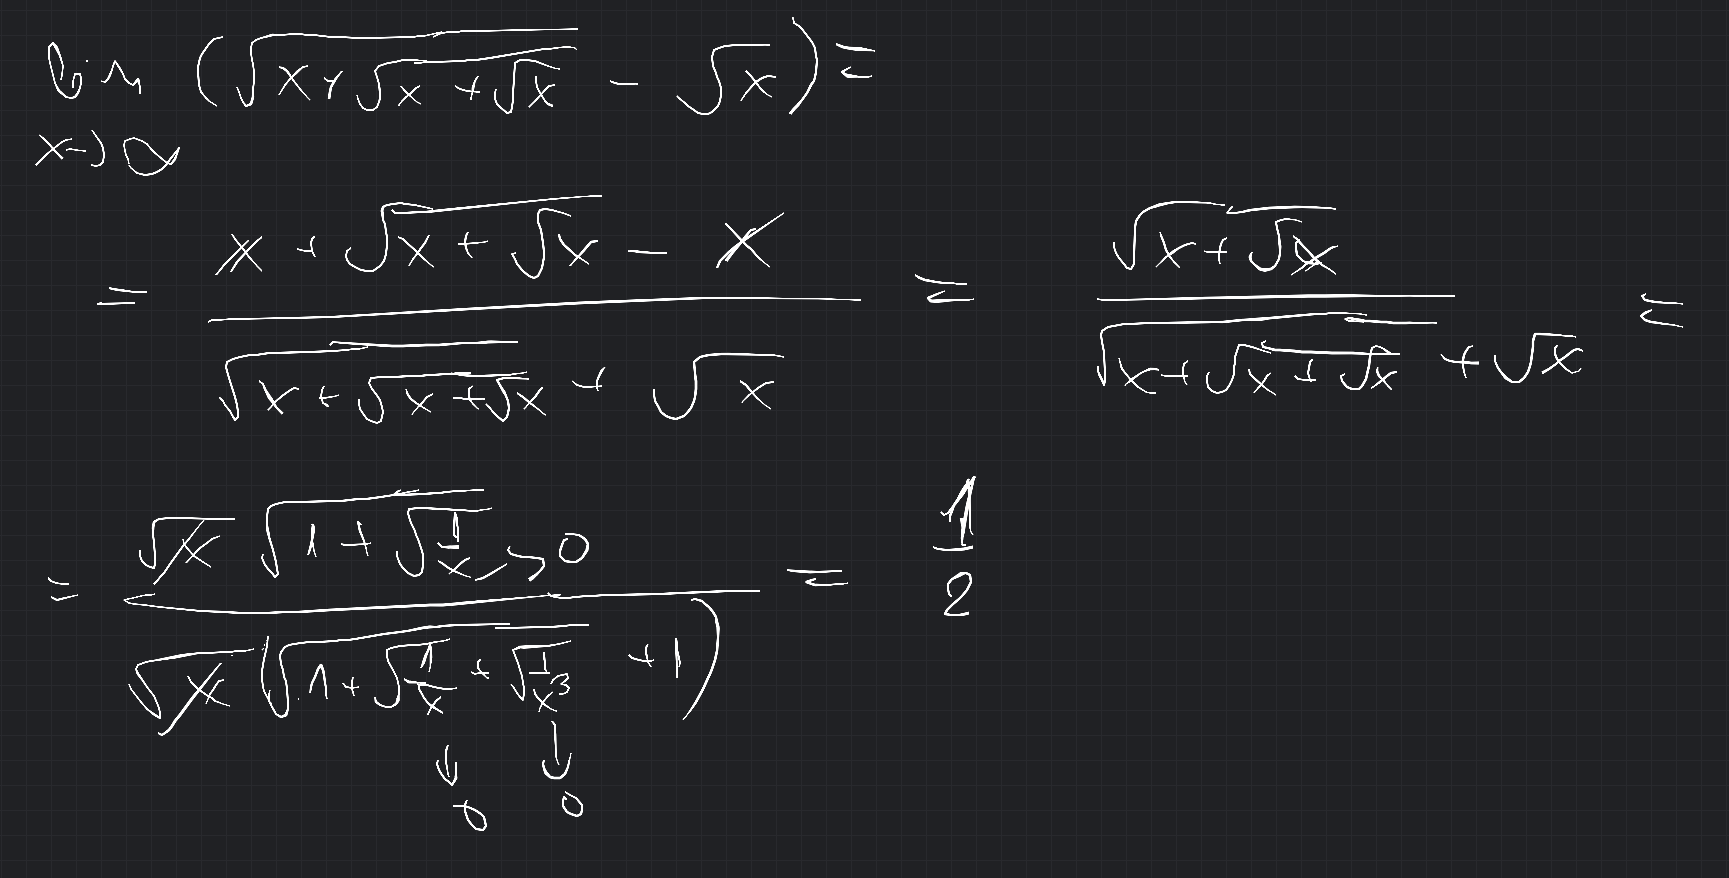 lim (√(x+√(x+√x)) - √x) =
x→∞
= (x + √(x+√x) - x) / (√(x+√(x+√x)) + √x) = √(x+√x) / (√(x+√(x+√x)) + √x) =
= (√x √(1+√(1/x)) → 0) / (√x (√(1+√(1/x + √(1/x³))) + 1)) = 1/2
↓ ↓
0 0